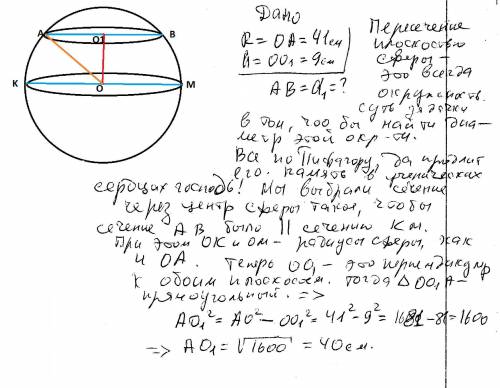 A O1 B
K O M
Дано
R = OA = 41 см
H = OO1 = 9 см
AB = d1 = ?
Пересечение
плоскостью
сферы -
это всегда
окружность.
суть задачи
в том, что бы найти диа-
метр этой окр-ти.
Все по Пифагору, да продлит
его память в ученических
сердцах господь! Мы выбрали сечение
через центр сферы такое, чтобы
сечение AB было || сечению KM.
При этом OK и OM - радиусы сферы, как
и OA. Теперь OO1 - это перпендикуляр
к обоим плоскостям. Тогда △ OO1A -
прямоугольный. =>
AO1² = AO² - OO1² = 41² - 9² = 1681 - 81 = 1600
=> AO1 = √1600 = 40 см.